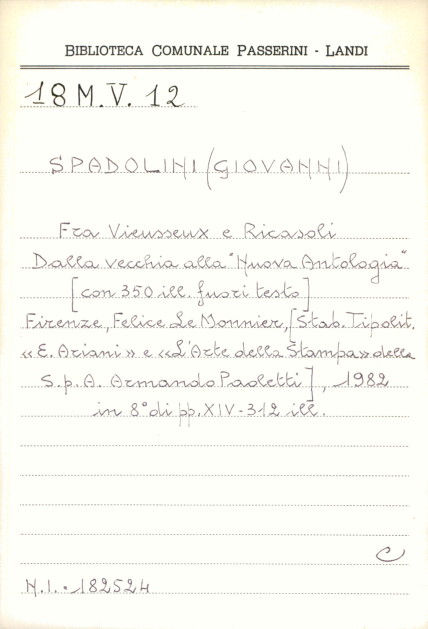 BIBLIOTECA COMUNALE PASSERINI - LANDI
18 M. V. 12
SPADOLINI (GIOVANNI)
Fra Vieusseux e Ricasoli
Dalla vecchia alla "Nuova Antologia"
[con 350 ill. fuori testo]
Firenze, Felice Le Monnier, [Stab. Tipolit.
«E. Ariani» e «L'Arte della Stampa» della
S.p.A. Armando Paoletti], 1982
in 8° di pp. XIV-312 ill.
C
N.I. · 182524